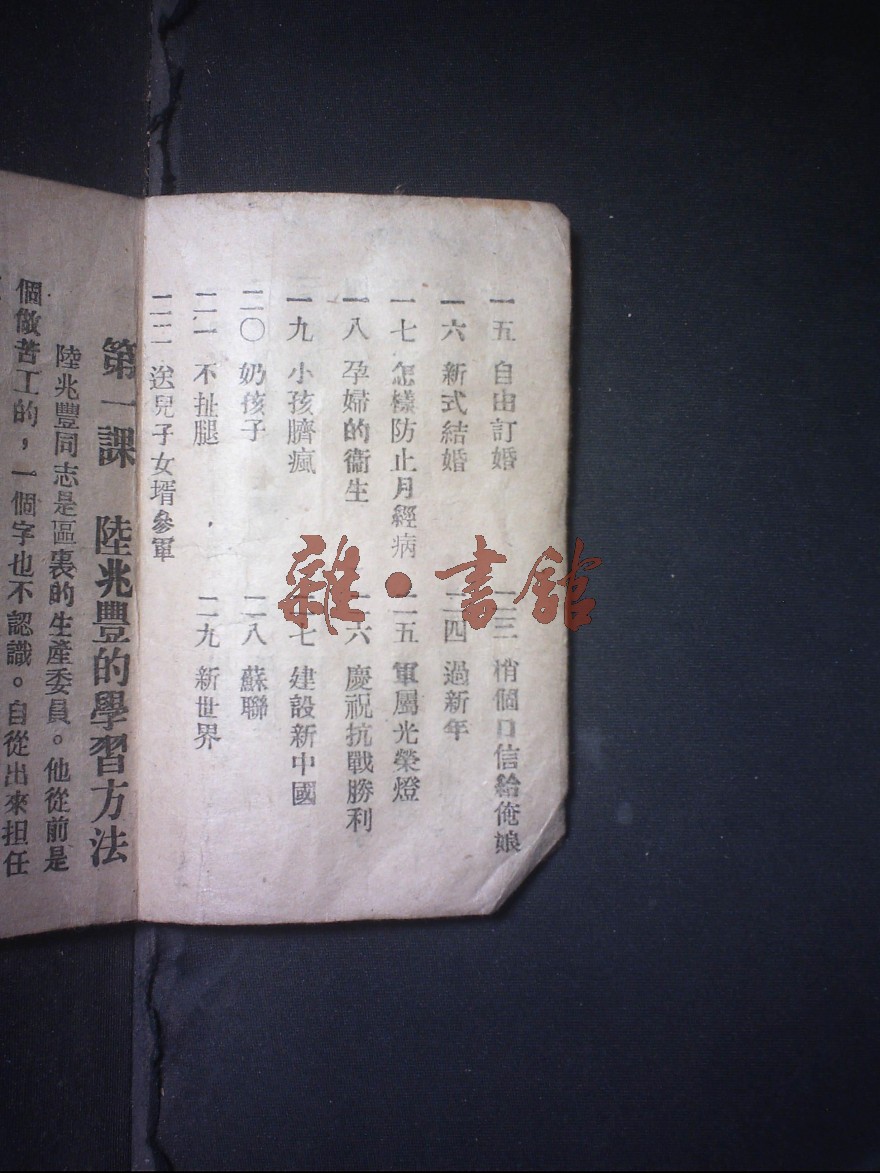 一五 自由訂婚
一六 新式結婚
一七 怎樣防止月經病
一八 孕婦的衞生
一九 小孩臍瘋
二〇 奶孩子
二一 不扯腿
二二 送兒子女壻參軍
二三 梢個口信給俺娘
二四 過新年
二五 軍屬光榮燈
二六 慶祝抗戰勝利
二七 建設新中國
二八 蘇聯
二九 新世界
第一課 陸兆豐的學習方法
陸兆豐同志是區裏的生產委員。他從前是
個做苦工的，一個字也不認識。自從出來担任
雜·書館